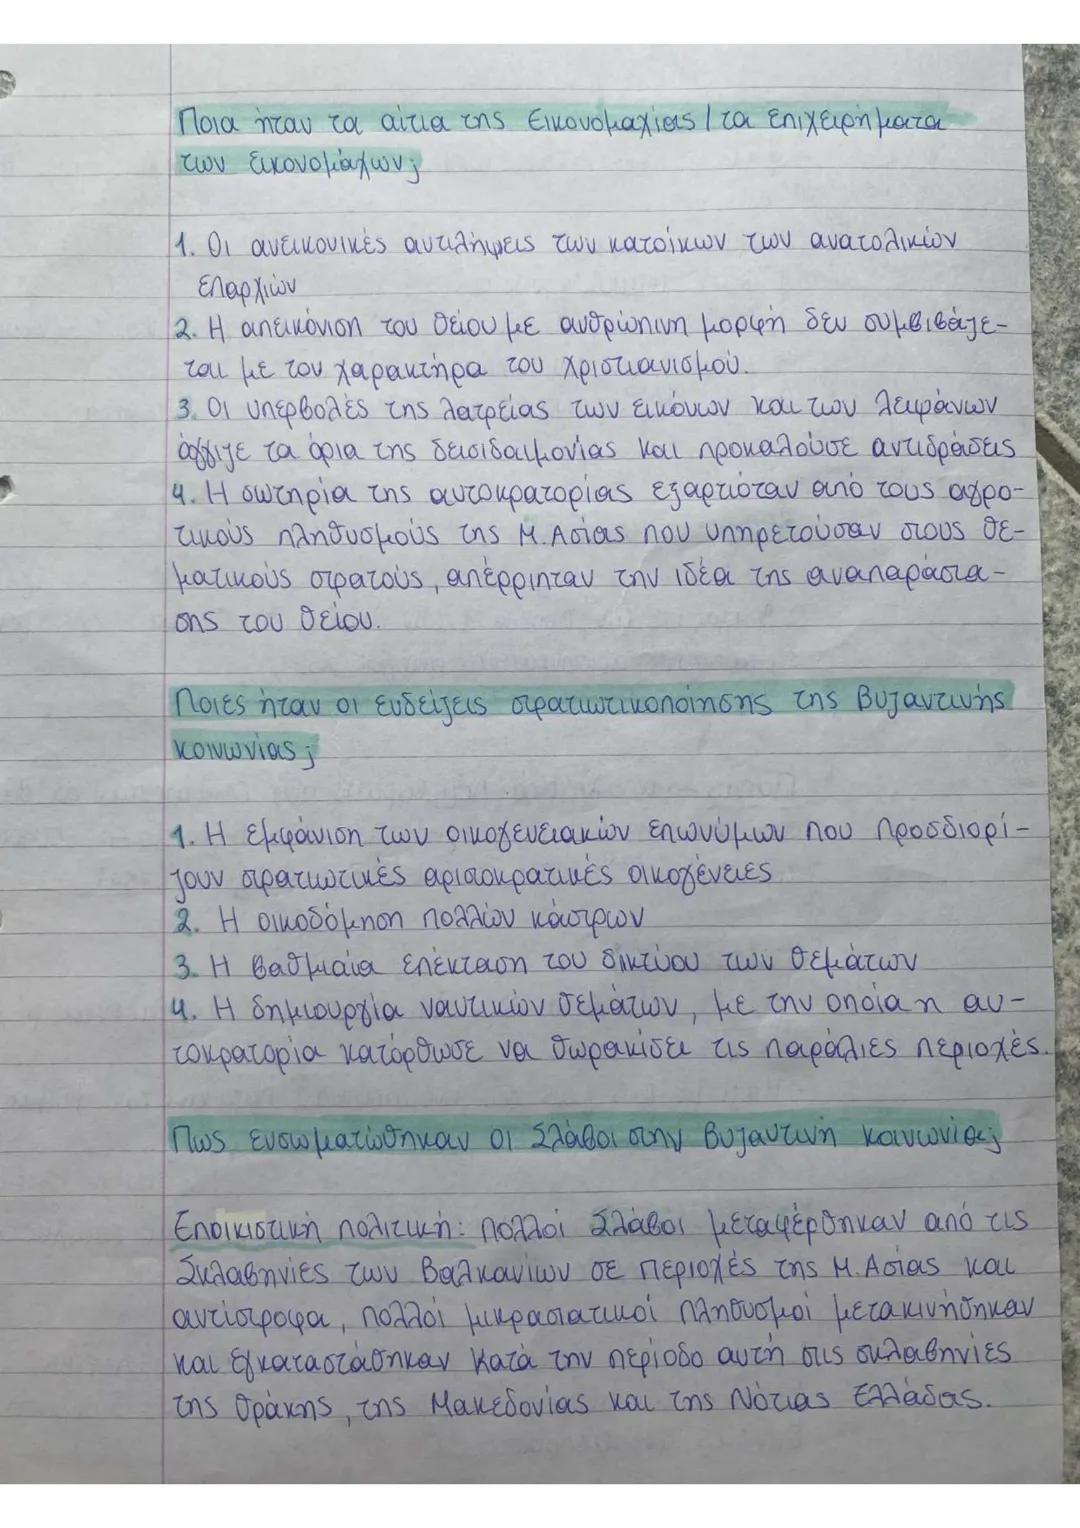 Ποια ήταν τα αίτια της Εικονομαχίας / τα επιχειρήματα
των εικονομάχων;
1. Οι ανεικονικές αντιλήψεις των κατοίκων των ανατολικών
επαρχιών
2. Η απεικόνιση του θείου με ανθρώπινη μορφή δεν συμβιβάζε-
ται με τον χαρακτήρα του Χριστιανισμού.
3. Οι υπερβολές της λατρείας των εικόνων και των λειψάνων
άγγιζε τα όρια της δεισιδαιμονίας και προκαλούσε αντιδράσεις
4. Η σωτηρία της αυτοκρατορίας εξαρτιόταν από τους αγρο-
τικούς πληθυσμούς της Μ. Ασίας που υπηρετούσαν στους θε-
ματικούς στρατούς, απέρριπταν την ιδέα της αναπαράστα-
σης του θείου.
Ποιες ήταν οι ενδείξεις στρατιωτικοποίησης της Βυζαντινής
κοινωνίας;
1. Η εμφάνιση των οικογενειακών επωνύμων που προσδιορί-
ζουν στρατιωτικές αριστοκρατικές οικογένειες
2. Η οικοδόμηση πολλών κάστρων
3. Η βαθμιαία επέκταση του δικτύου των θεμάτων
4. Η δημιουργία ναυτικών θεμάτων, με την οποία η αυ-
τοκρατορία κατόρθωσε να θωρακίσει τις παράλιες περιοχές.
Πως ενσωματώθηκαν οι Σλάβοι στην Βυζαντινή κοινωνία;
Εποικιστική πολιτική: πολλοί Σλάβοι μεταφέρθηκαν από τις
Σκλαβηνίες των Βαλκανίων σε περιοχές της Μ. Ασίας και
αντίστροφα, πολλοί μικρασιατικοί πληθυσμοί μετακινήθηκαν
και εγκαταστάθηκαν κατά την περίοδο αυτή στις σκλαβηνίες
της Θράκης, της Μακεδονίας και της Νότιας Ελλάδας.